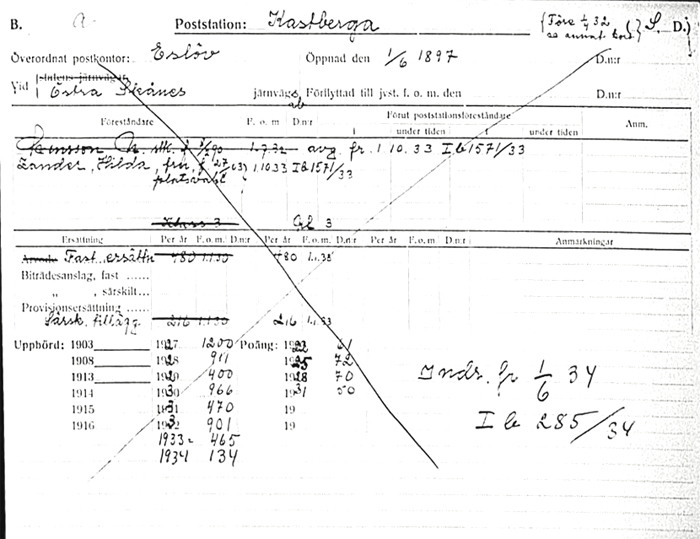 B. a. Poststation: Kastberga {Före 1/4 32 se annat kort} (S. D.)
Överordnat postkontor: Eslöv Öppnad den 1/6 1897 D.n:r
Vid {statens järnväg
Östra Skånes järnväg Förflyttad till jvst. f. o. m. den D.n:r
Föreståndare F. o. m. D.n:r Förut poststationsföreståndare Anm.
i under tiden i under tiden
1.7.32 avg. fr. 1 10. 33 I b 1571/33
Zander, Hilda, frk, f 27/ 03) 1.10.33 I b 1571/33
platsvakt
Klass 3 Gl 3
Ersättning Per år F. o. m. D.n:r Per år F. o. m. D.n:r Per år F. o. m D.n:r Anmärkningar
Fast ersättn 480 1.1.30 480 1.1.33
Biträdesanslag, fast ......
„ , särskilt...
Provisionsersättning ......
Särsk. tillägg 216 1.1.30 216 1.1.33
Uppbörd: 1903 1927 1200 Poäng: 1922 61
1908 1928 911 1925 72
1913 1929 400 1928 70
1914 1930 966 1931 50
1915 1931 470 19
1916 1932 901 19
1933 465
1934 134
Indr. fr 1/6 34
I b 285/34